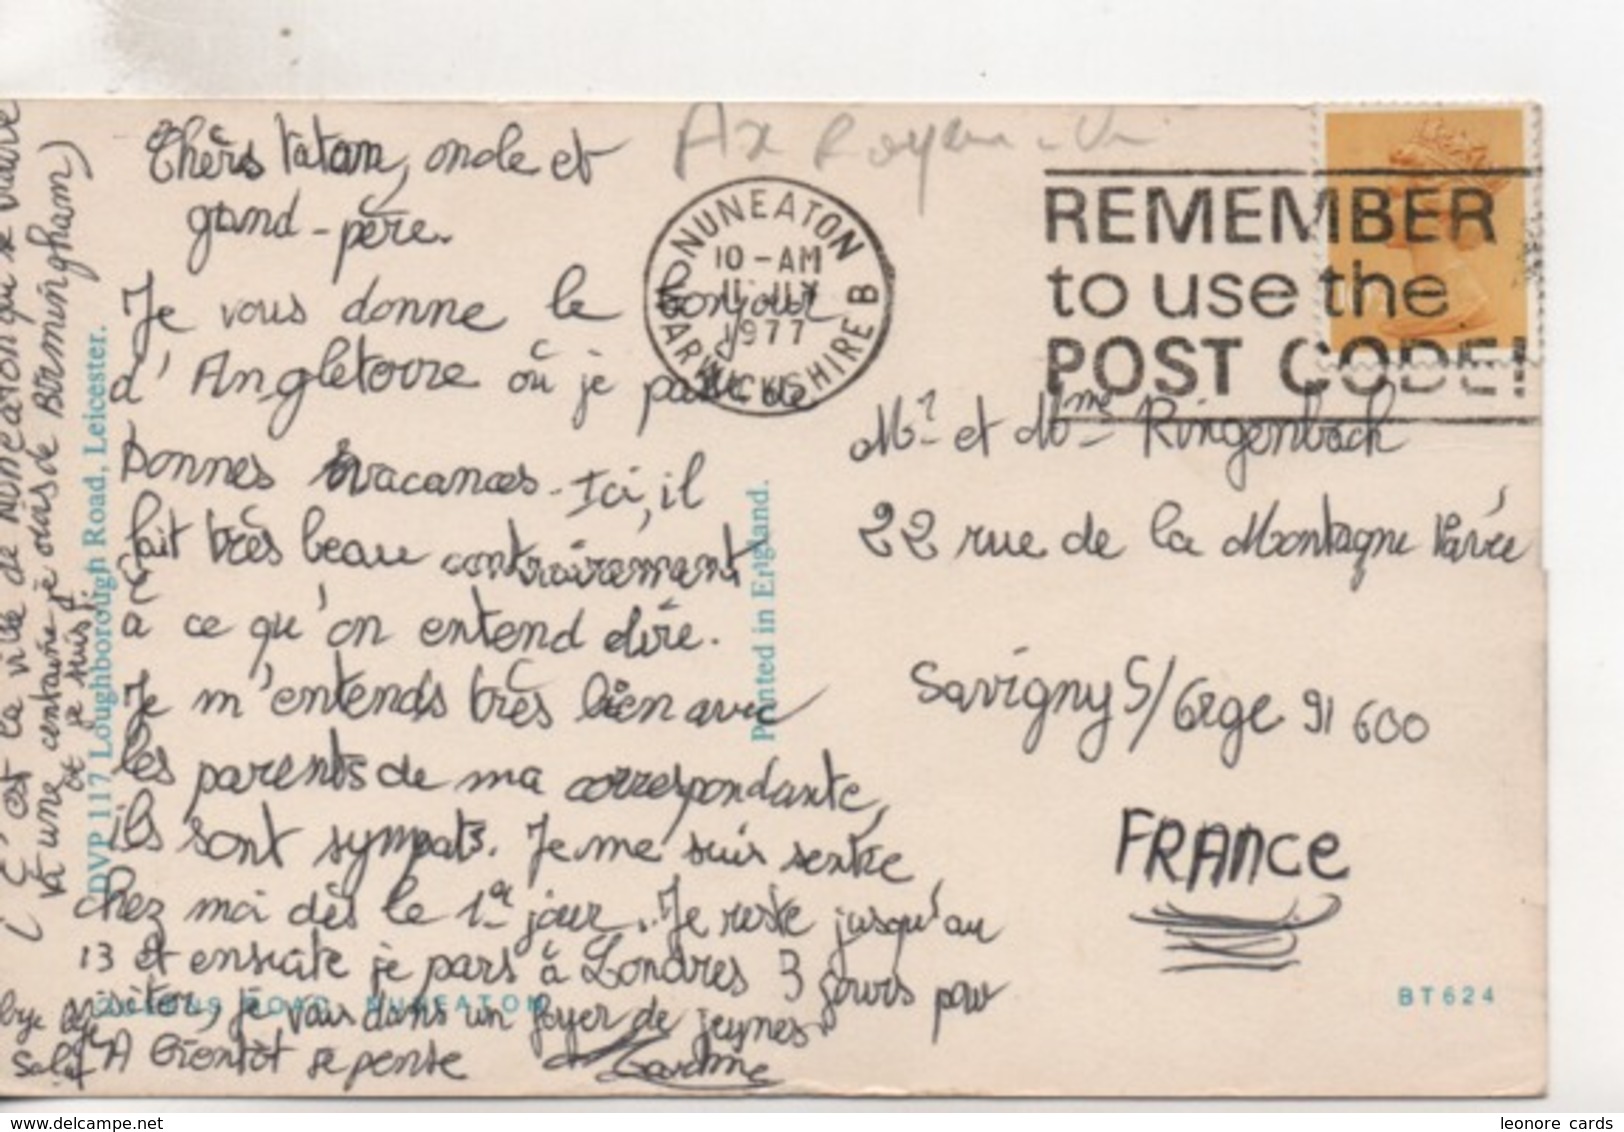 Chèrs tatan, oncle et
grand-père.
Je vous donne le bonjour
d'Angleterre où je passe de
bonnes vacances. Ici, il
fait très beau contrairement
à ce qu'on entend dire.
Je m'entends très bien avec
les parents de ma correspondante,
ils sont sympats. Je me suis sentie
chez moi dès le 1er jour. Je reste jusqu'au
13 et ensuite je pars à Londres 3 jours pour
visiter, je vais dans un foyer de jeunes
A bientôt je pense
bye bye
Salut
(C'est la ville de NUNEATON qui se trouve
à une centaine je crois de Birmingham)
où je suis.
DVP 117 Loughborough Road, Leicester.
Printed in England.
QUEENS ROAD, NUNEATON
NUNEATON
10-AM
11 JLY
1977
WARWICKSHIRE B
REMEMBER
to use the
POST CODE!
Mr et Mme Ringenbach
22 rue de la Montagne Pavée
Savigny S/Orge 91600
FRANCE
BT624
leonore cards